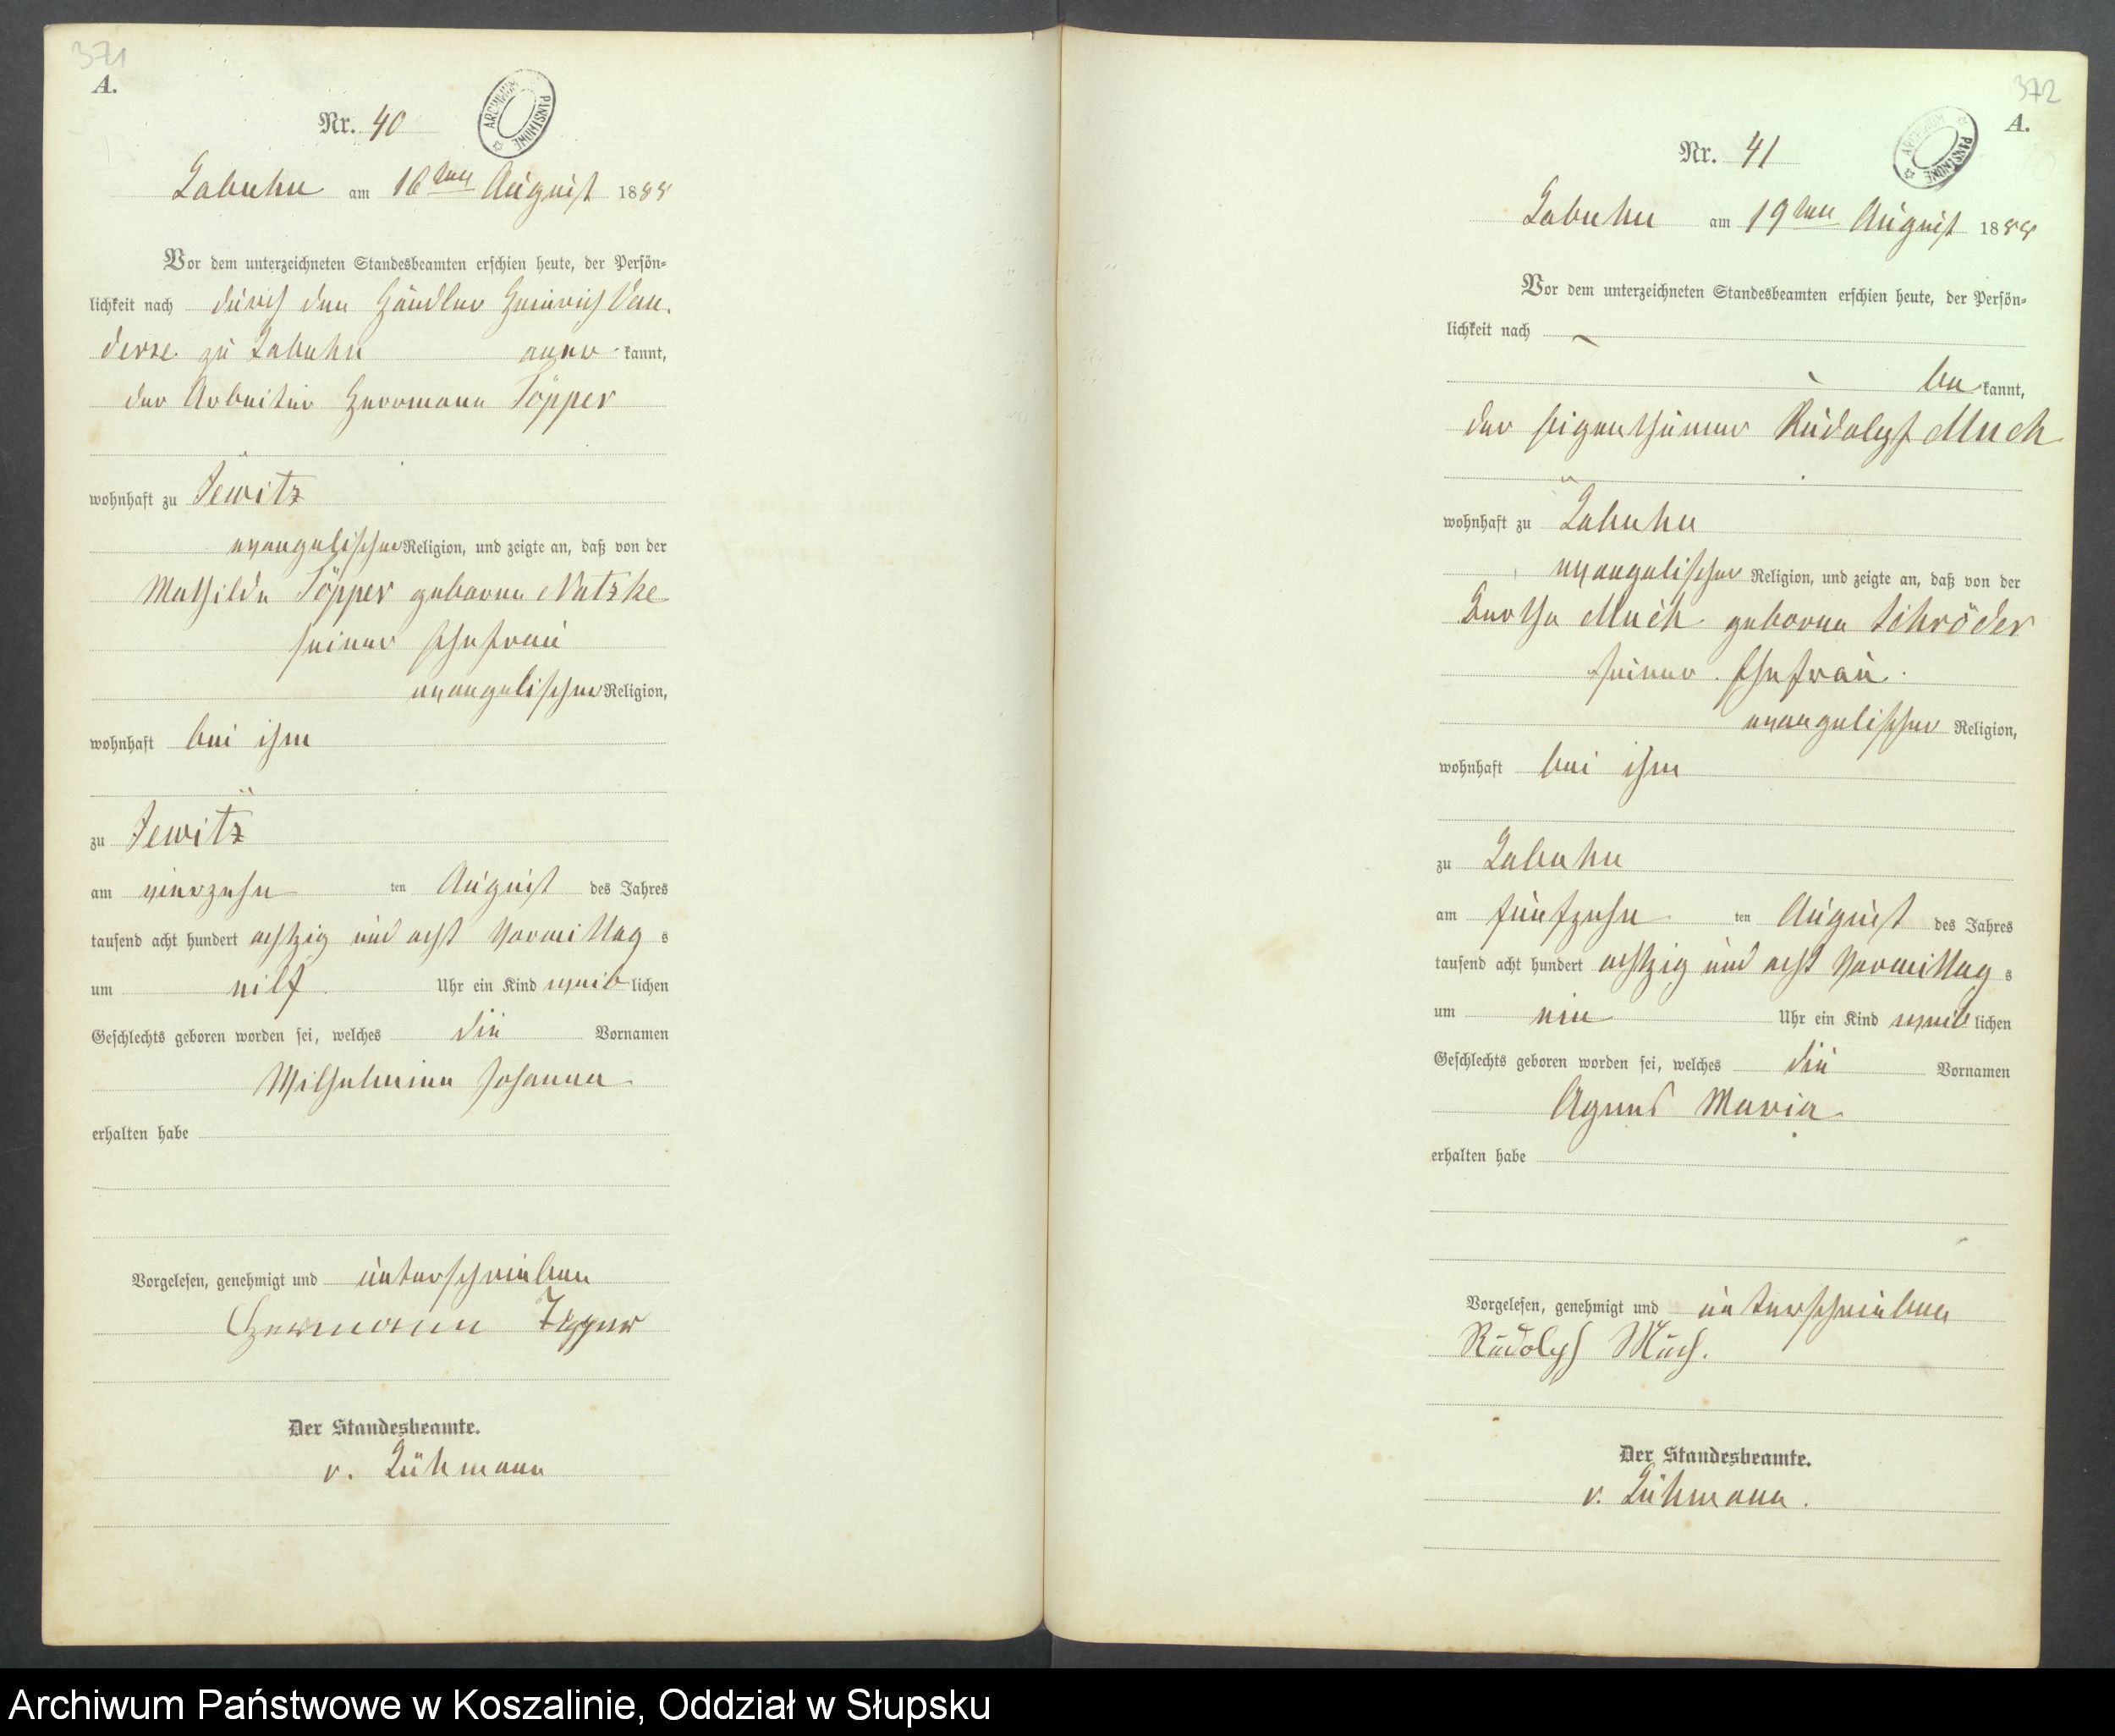 371
A.
Nr. 40
ARCHIWUM PAŃSTWOWE
Labuhn am 16ten August 1888
Vor dem unterzeichneten Standesbeamten erschien heute, der Persön-
lichkeit nach durch den Händler Heinrich Van-
derse zu Labuhn aner kannt,
der Arbeiter Herrmann Töpper
wohnhaft zu Jewitz
evangelischer Religion, und zeigte an, daß von der
Mathilde Töpper geborne Natzke
seiner Ehefrau
evangelischer Religion,
wohnhaft bei ihm
zu Jewitz
am vierzehn ten August des Jahres
tausend acht hundert achtzig und acht Vormittag s
um elf Uhr ein Kind weib lichen
Geschlechts geboren worden sei, welches die Vornamen
Wilhelmine Johanna
erhalten habe
Vorgelesen, genehmigt und unterschrieben
Herrmann Töpper
Der Standesbeamte.
v. Lühmann
372
A.
Nr. 41
ARCHIWUM PAŃSTWOWE
Labuhn am 19ten August 1888
Vor dem unterzeichneten Standesbeamten erschien heute, der Persön-
lichkeit nach
be kannt,
der Eigenthümer Rudolph Much
wohnhaft zu Labuhn
evangelischer Religion, und zeigte an, daß von der
Bertha Much geborne Schröder
seiner Ehefrau
evangelischer Religion,
wohnhaft bei ihm
zu Labuhn
am fünfzehn ten August des Jahres
tausend acht hundert achtzig und acht Vormittag s
um ein Uhr ein Kind weib lichen
Geschlechts geboren worden sei, welches die Vornamen
Agnes Maria
erhalten habe
Vorgelesen, genehmigt und unterschrieben
Rudolph Much.
Der Standesbeamte.
v. Lühmann.
Archiwum Państwowe w Koszalinie, Oddział w Słupsku